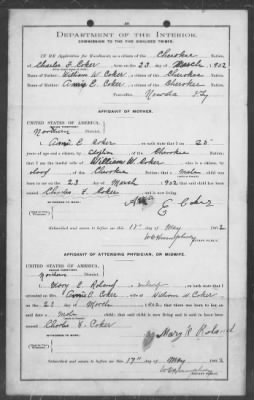 DEPARTMENT OF THE INTERIOR.
COMMISSION TO THE FIVE CIVILIZED TRIBES.
IN RE Application for Enrollment, as a citizen of the Cherokee Nation, of
Charles F. Coker, born on the 23 day of March, 1902
Name of Father: William W. Coker, a citizen of the Cherokee Nation.
Name of Mother: Annie E. Coker, a citizen of the Cherokee Nation.
Postoffice Nowata I Ty
AFFIDAVIT OF MOTHER.
UNITED STATES OF AMERICA,
INDIAN TERRITORY,
Northern District.
I, Annie E. Coker, on oath state that I am 25
years of age and a citizen by, of the Cherokee Nation;
that I am the lawful wife of William W. Coker, who is a citizen, by
blood, of the Cherokee Nation; that a male child was
born to me on the 23 day of March, 1902, that said child has been
named Charles F. Coker, and is now living.
E Coker
Subscribed and sworn to before me this 17 day of May, 1902
NOTARY PUBLIC.
AFFIDAVIT OF ATTENDING PHYSICIAN, OR MIDWIFE.
UNITED STATES OF AMERICA,
INDIAN TERRITORY,
Northern District.
I, Mary, a midwife, on oath state that I
attended on Mrs. Annie E. Coker, wife of William W Coker
on the 23 day of March, 1902; that there was born to her on
said date a male child; that said child is now living and is said to have been
named Charles F. Coker
Mary
Subscribed and sworn to before me this 17th day of May, 1902
NOTARY PUBLIC.